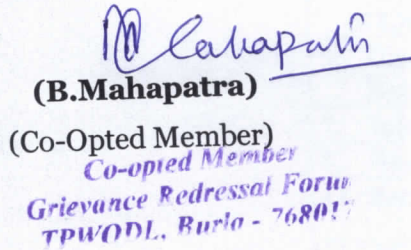 Mahapatra
(B.Mahapatra)
(Co-Opted Member)
Co-opted Member
Grievance Redressal Forum
TPWODL, Burla - 768017